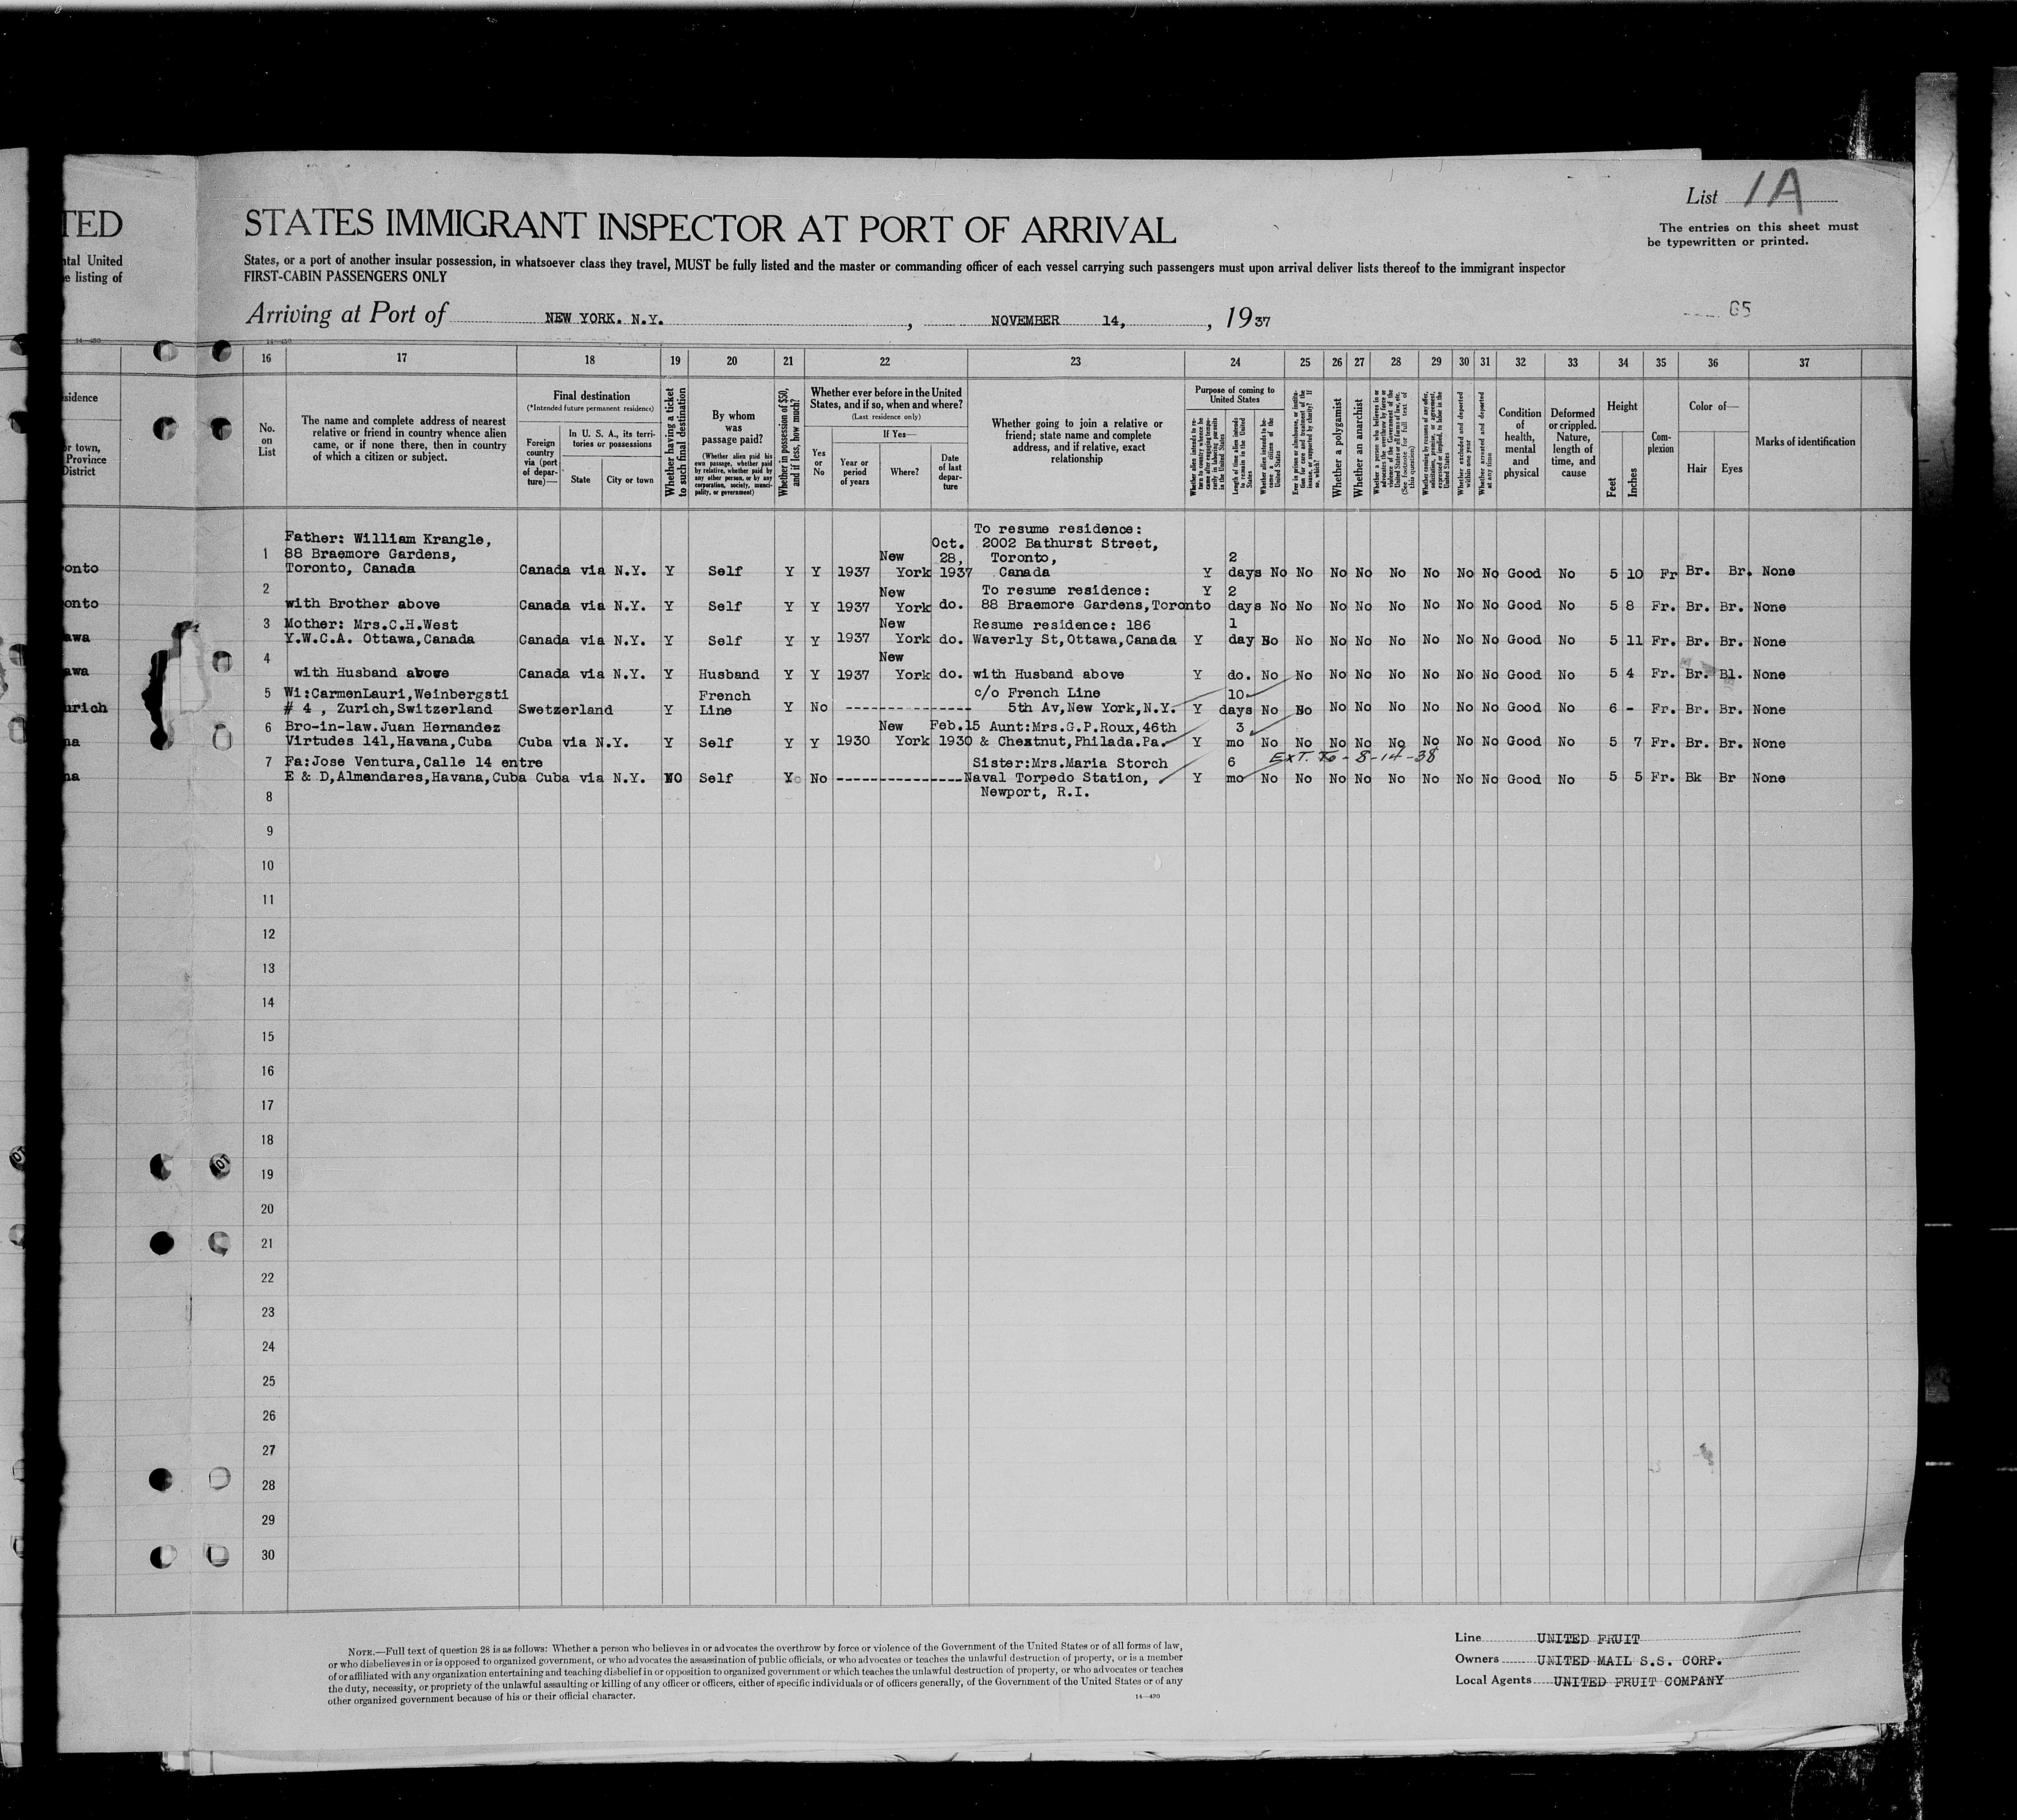 List 1A
The entries on this sheet must
be typewritten or printed.
TED
STATES IMMIGRANT INSPECTOR AT PORT OF ARRIVAL
ntal United
e listing of
States, or a port of another insular possession, in whatsoever class they travel, MUST be fully listed and the master or commanding officer of each vessel carrying such passengers must upon arrival deliver lists thereof to the immigrant inspector
FIRST-CABIN PASSENGERS ONLY
Arriving at Port of NEW YORK. N.Y. , NOVEMBER 14, , 1937
65
14—490
16 17 18 19 20 21 22 23 24 25 26 27 28 29 30 31 32 33 34 35 36 37
sidence
or town,
Province
District
No.
on
List
The name and complete address of nearest
relative or friend in country whence alien
came, or if none there, then in country
of which a citizen or subject.
Final destination
(*Intended future permanent residence)
Foreign
country
via (port
of depar-
ture)—
In U. S. A., its terri-
tories or possessions
State City or town
Whether having a ticket
to such final destination
By whom
was
passage paid?
(Whether alien paid his
own passage, whether paid
by relative, whether paid by
any other person, or by any
corporation, society, munici-
pality, or government)
Whether in possession of $50,
and if less, how much?
Whether ever before in the United
States, and if so, when and where?
(Last residence only)
Yes
or
No
If Yes—
Year or
period
of years
Where?
Date
of last
depar-
ture
Whether going to join a relative or
friend; state name and complete
address, and if relative, exact
relationship
Purpose of coming to
United States
Whether alien intends to re-
turn to country whence he
came after engaging tempo-
rarily in laboring pursuits
in the United States
Length of time alien intends
to remain in the United
States
Whether alien intends to be-
come a citizen of the
United States
Ever in prison or almshouse, or institu-
tion for care and treatment of the
insane, or supported by charity? If
so, which?
Whether a polygamist
Whether an anarchist
Whether a person who believes in or
advocates the overthrow by force or
violence of the Government of the
United States or all forms of law, etc.
(See footnote for full text of
this question)
Whether coming by reason of any offer,
solicitation, promise, or agreement,
expressed or implied, to labor in the
United States
Whether excluded and deported
within one year
Whether arrested and deported
at any time
Condition
of
health,
mental
and
physical
Deformed
or crippled.
Nature,
length of
time, and
cause
Height
Feet Inches
Com-
plexion
Color of—
Hair Eyes
Marks of identification
Father: William Krangle, Oct. To resume residence:
1 88 Braemore Gardens, New 28, 2002 Bathurst Street, 2
onto Toronto, Canada Canada via N.Y. Y Self Y Y 1937 York 1937 Toronto, Canada Y days No No No No No No No No Good No 5 10 Fr Br. Br. None
2 New To resume residence: Y 2
onto with Brother above Canada via N.Y. Y Self Y Y 1937 York do. 88 Braemore Gardens,Toronto days No No No No No No No No Good No 5 8 Fr. Br. Br. None
3 Mother: Mrs.C.H.West New Resume residence: 186 1
awa Y.W.C.A. Ottawa,Canada Canada via N.Y. Y Self Y Y 1937 York do. Waverly St,Ottawa,Canada Y day No No No No No No No No Good No 5 11 Fr. Br. Br. None
4 New
awa with Husband above Canada via N.Y. Y Husband Y Y 1937 York do. with Husband above Y do. No No No No No No No No Good No 5 4 Fr. Br. Bl. None
5 Wi:CarmenLauri,Weinbergsti French c/o French Line 10
urich # 4 , Zurich,Switzerland Swetzerland Y Line Y No ---------------- 5th Av,New York,N.Y. Y days No No No No No No No No Good No 6 - Fr. Br. Br. None
6 Bro-in-law.Juan Hernandez New Feb.15 Aunt:Mrs.G.P.Roux,46th 3
na Virtudes 141,Havana,Cuba Cuba via N.Y. Y Self Y Y 1930 York 1930 & Chestnut,Philada.Pa. Y mo No No No No No No No No Good No 5 7 Fr. Br. Br. None
7 Fa:Jose Ventura,Calle 14 entre Sister:Mrs.Maria Storch 6 EXT. To - 8-14-38
na E & D,Almendares,Havana,Cuba Cuba via N.Y. NO Self Y No ---------------- Naval Torpedo Station, Y mo No No No No No No No No Good No 5 5 Fr. Bk Br None
8 Newport, R.I.
9
10
11
12
13
14
15
16
17
18
19
20
21
22
23
24
25
26
27
28
29
30
NOTE.—Full text of question 28 is as follows: Whether a person who believes in or advocates the overthrow by force or violence of the Government of the United States or of all forms of law,
or who disbelieves in or is opposed to organized government, or who advocates the assassination of public officials, or who advocates or teaches the unlawful destruction of property, or is a member
of or affiliated with any organization entertaining and teaching disbelief in or opposition to organized government or which teaches the unlawful destruction of property, or who advocates or teaches
the duty, necessity, or propriety of the unlawful assaulting or killing of any officer or officers, either of specific individuals or of officers generally, of the Government of the United States or of any
other organized government because of his or their official character.
14—490
Line UNITED FRUIT
Owners UNITED MAIL S.S. CORP.
Local Agents UNITED FRUIT COMPANY